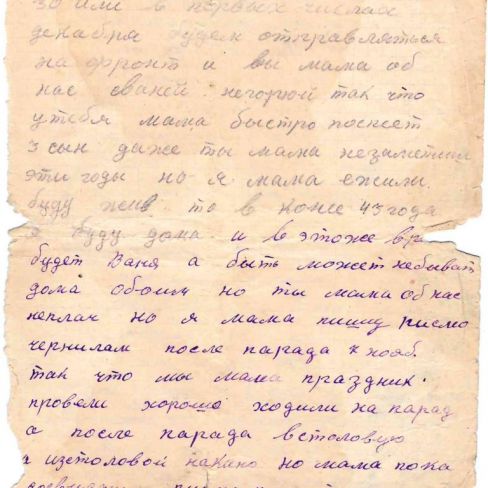 30 или в первых числах
декабря будем отправляться
на фронт и вы мама об
нас сваней негорюй так что
утебя мама быстро поспеет
3 сын даже ты мама незаметиш
эти годы но я мама ежили
буду жив то в конце 43 года
я буду дома и в этоже вр
будет Ваня а быть может небыват
дома обоим но ты мама об нас
неплач но я мама пишу писмо
чернилам после парада 7 нояб.
так что мы мама праздник
провели хорошо ходили на парад
а после парада встоловую
а изстоловой накино но мама пока